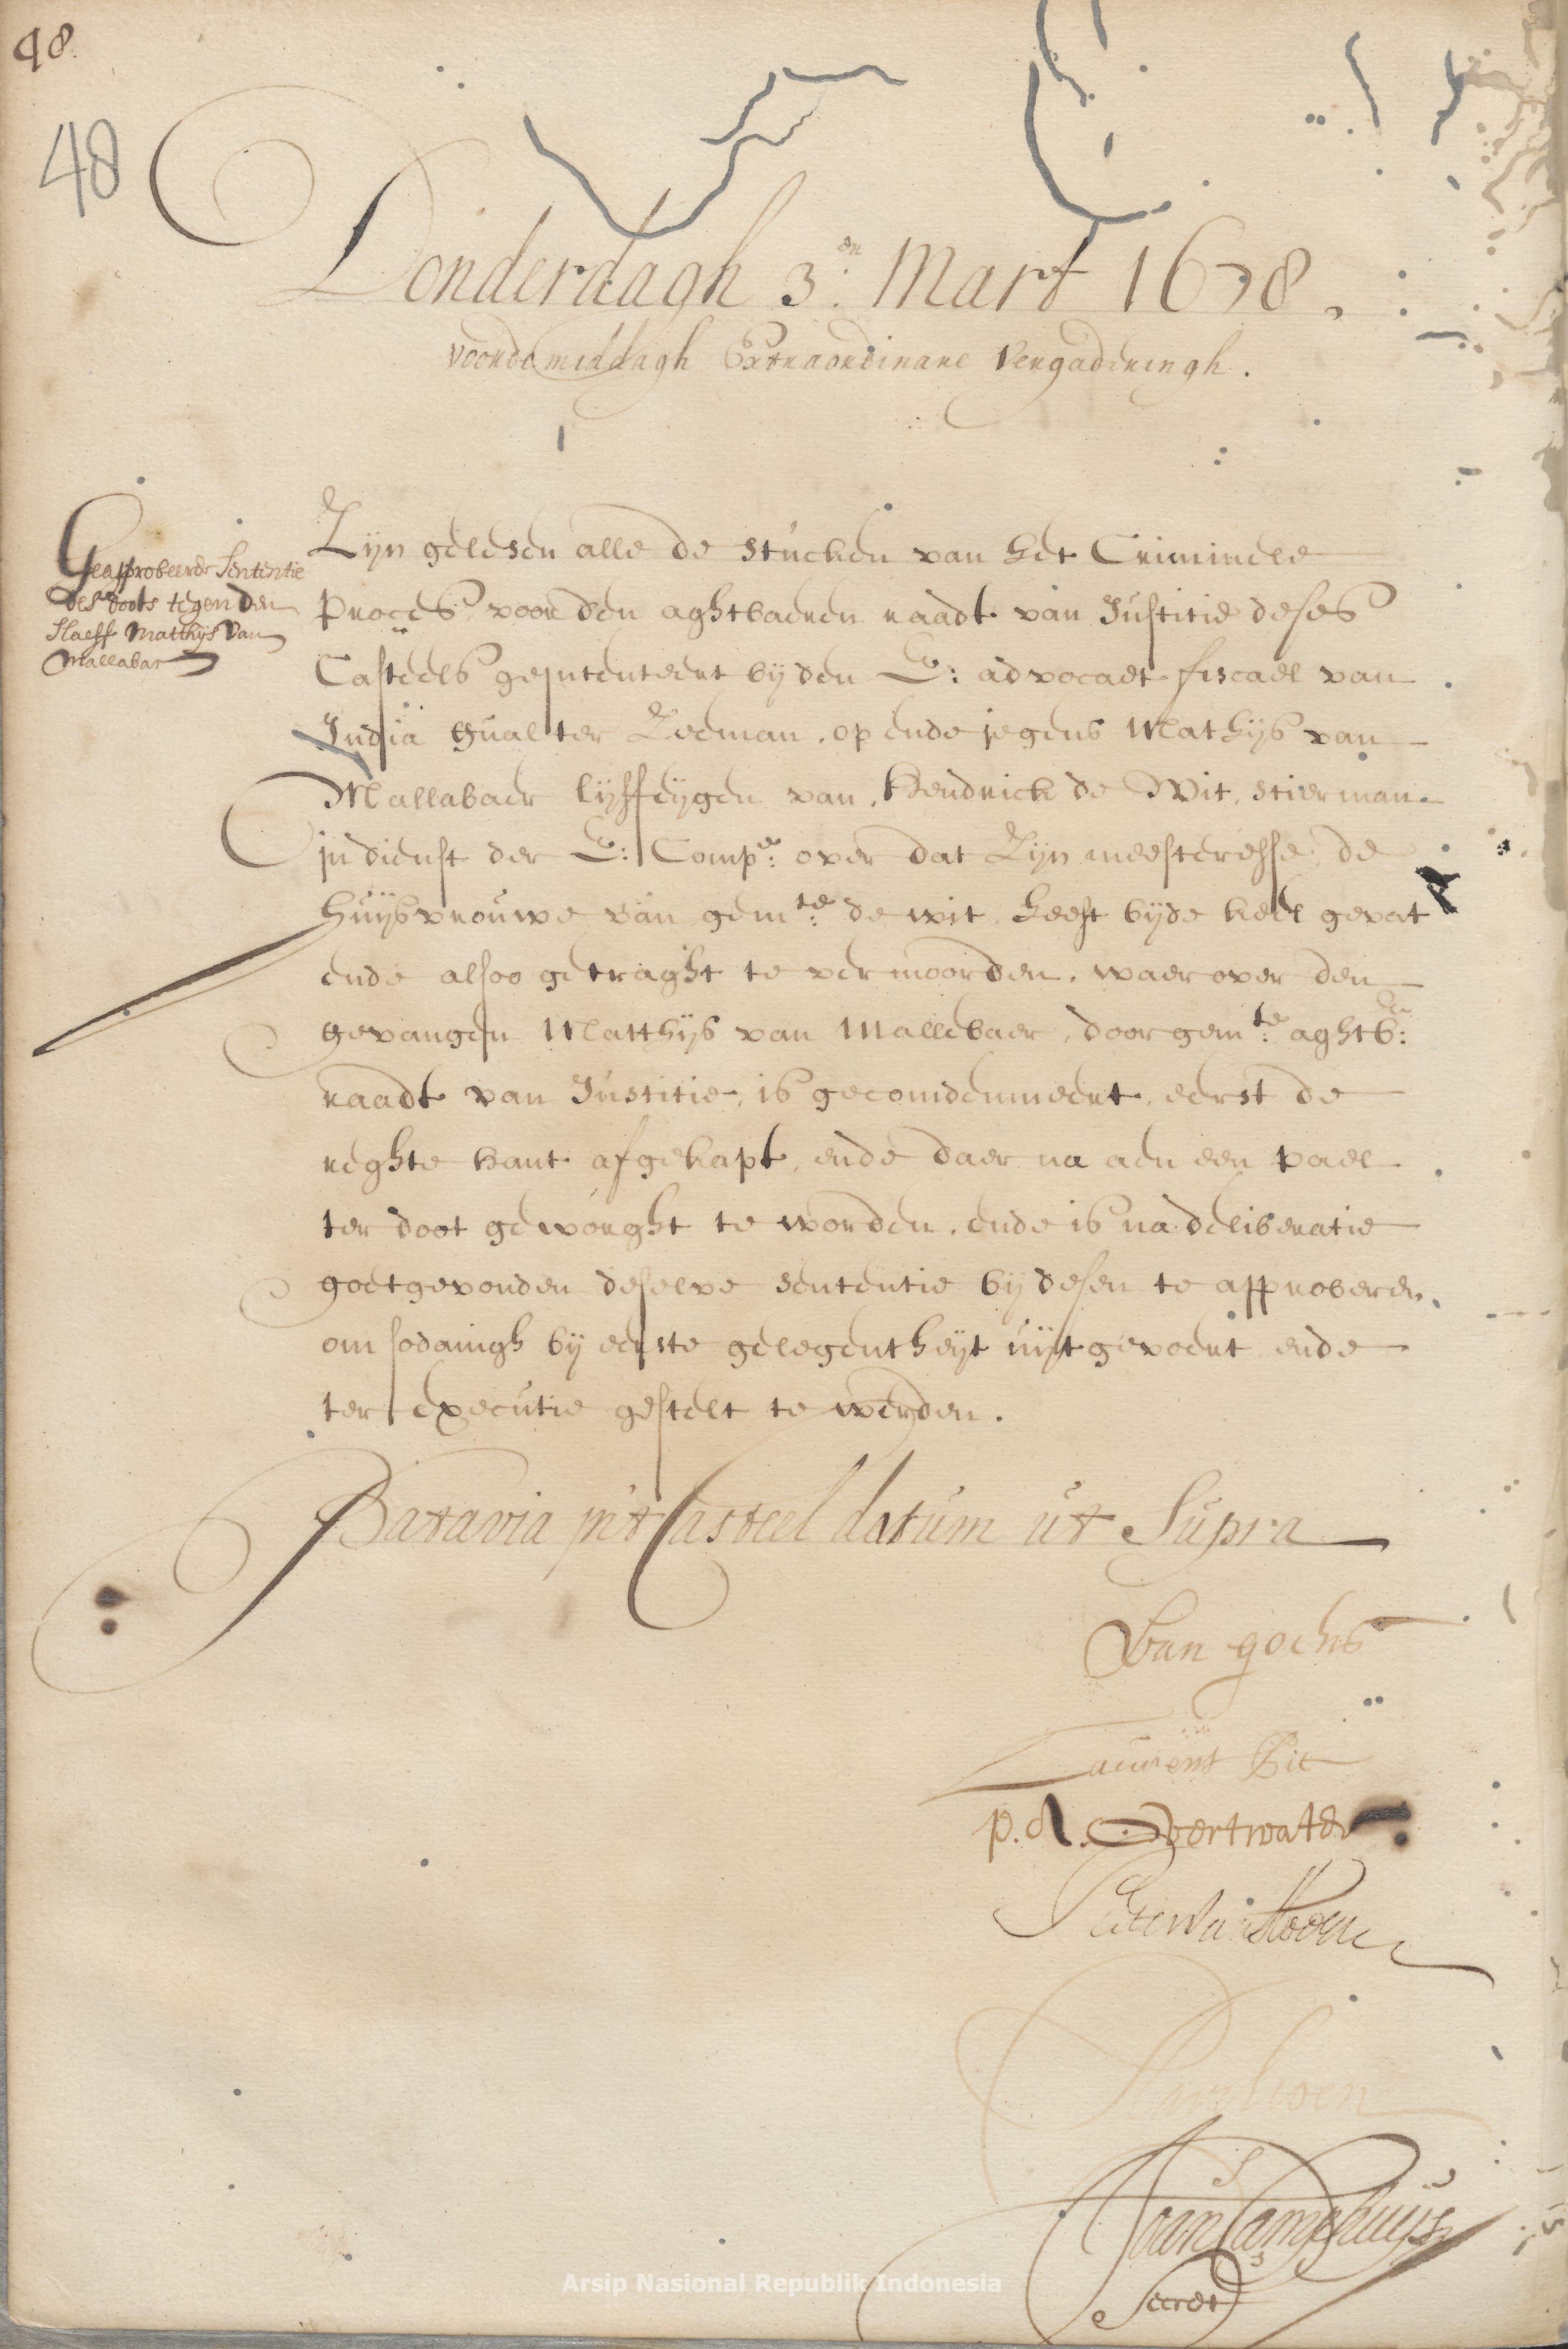 48.
48
Donderdagh 3.en Mart 1678.
voorde middagh Extraordinare Vergaderingh.
Geapprobeerde Sententie
des doots tegen den
Slaeff Matthijs Van
Mallabar
Zijn gelesen alle de stucken van het Criminele
Proces voor den aghtbaeren raadt van Justitie deses
Casteels geintenteert bij den E: advocaet fiscael van
India Gualter Zeeman, op ende jegens Mathijs van
Mallabaer lijffeijgen van Hendrick de Wit, stierman
in dienst der E: Compe: over dat Zijn meesteresse, de
huijsvrouwe van gemte: de wit heeft bijde keel gevat
ende alsoo getraght te vermoorden, waer over den
gevangen Matthijs van Mallebaer, door gemte: aghtb:
raadt van Justitie, is gecomdemneert, eerst de
reghte hant afgekapt, ende daer na aen een pael
ter doot geworght te worden, ende is na deliberatie
goetgevonden deselve sententie bij desen te approberen,
om sodanigh bij eerste gelegentheijt uijtgevoert ende
ter executie gestelt te werden.
Batavia in't Casteel datum ut Supra
Van goens
Laurens Pit
p. A. Overtwater
Pieter van Hoorn
Joan Camphuijs
Secret
Arsip Nasional Republik Indonesia